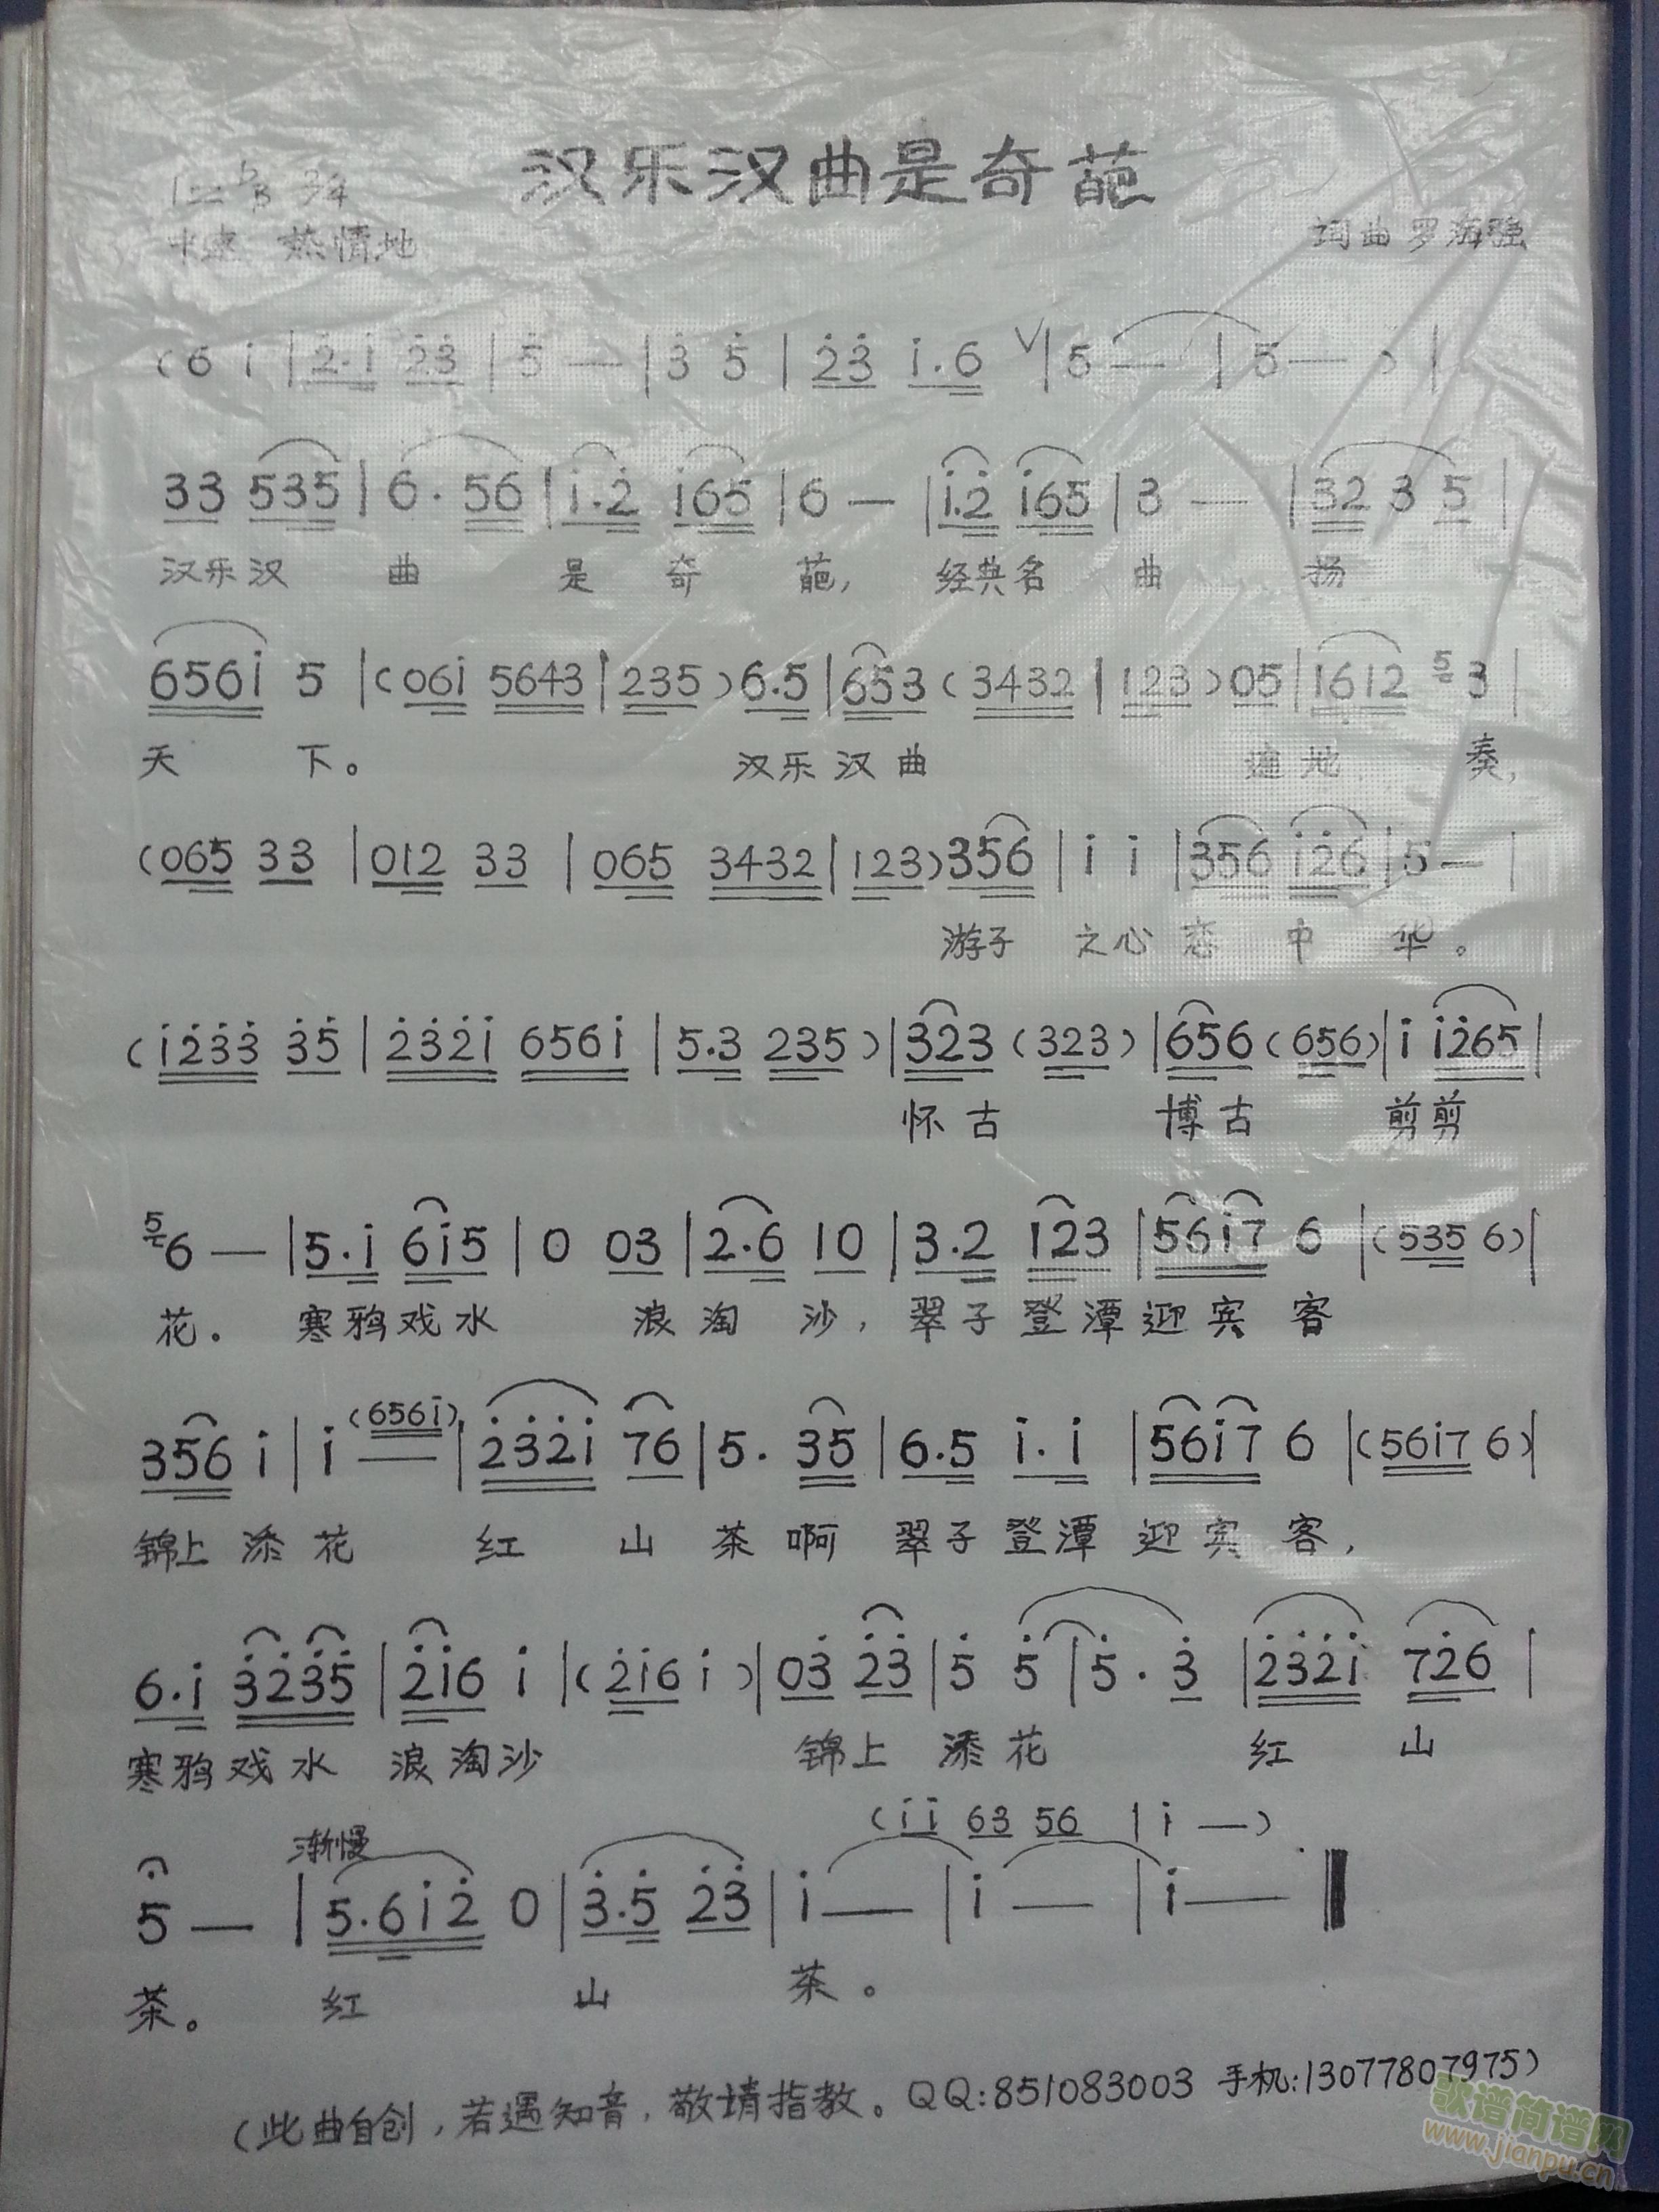 汉乐汉曲是奇葩
1=♭B 2/4
中速 热情地
词曲 罗海强
(6 i | 2·i 23 | 5 — | 3 5 | 23 i·6 V | 5 — | 5 — ) |
33 535 | 6·56 | i·2 i65 | 6 — | i·2 i65 | 3 — | 32 3 5 |
汉乐汉 曲 是 奇 葩, 经典名 曲 扬
656i 5 | (06i 5643 | 235) 6·5 | 653 (3432 | 123) 05 | 1612 5 3 |
天 下。 汉乐汉曲 遍地 奏,
(065 33 | 012 33 | 065 3432 | 123) 356 | i i | 356 i26 | 5 — |
游子 之心恋 中 华。
(i233 35 | 232i 656i | 5·3 235) | 323 (323) | 656 (656) | i i265 |
怀古 博古 剪剪
5 6 — | 5·i 6i5 | 0 03 | 2·6 10 | 3·2 123 | 56i7 6 | (535 6) |
花。 寒鸦戏水 浪淘 沙, 翠子登潭迎宾 客
(656i)
356 i | i — | 232i 76 | 5· 35 | 6·5 i·i | 56i7 6 | (56i7 6) |
锦上 添 花 红 山 茶 啊 翠子登潭 迎宾 客,
6·i 3235 | 2i6 i | (2i6 i) | 03 23 | 5 5 | 5·3 | 232i 726 |
寒鸦戏水 浪淘沙 锦上 添花 红 山
(ii 63 56 | i —)
渐慢
5 — | 5·6i2 0 | 3·5 23 | i — | i — | i — ‖
茶。 红 山 茶。
(此曲自创,若遇知音,敬请指教。QQ:851083003 手机:13077807975)
歌谱简谱网
www.jianpu.cn